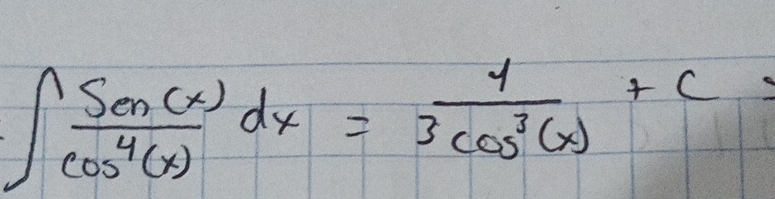 ∫ Sen(x)/cos⁴(x) dx = 1/3cos³(x) + C =